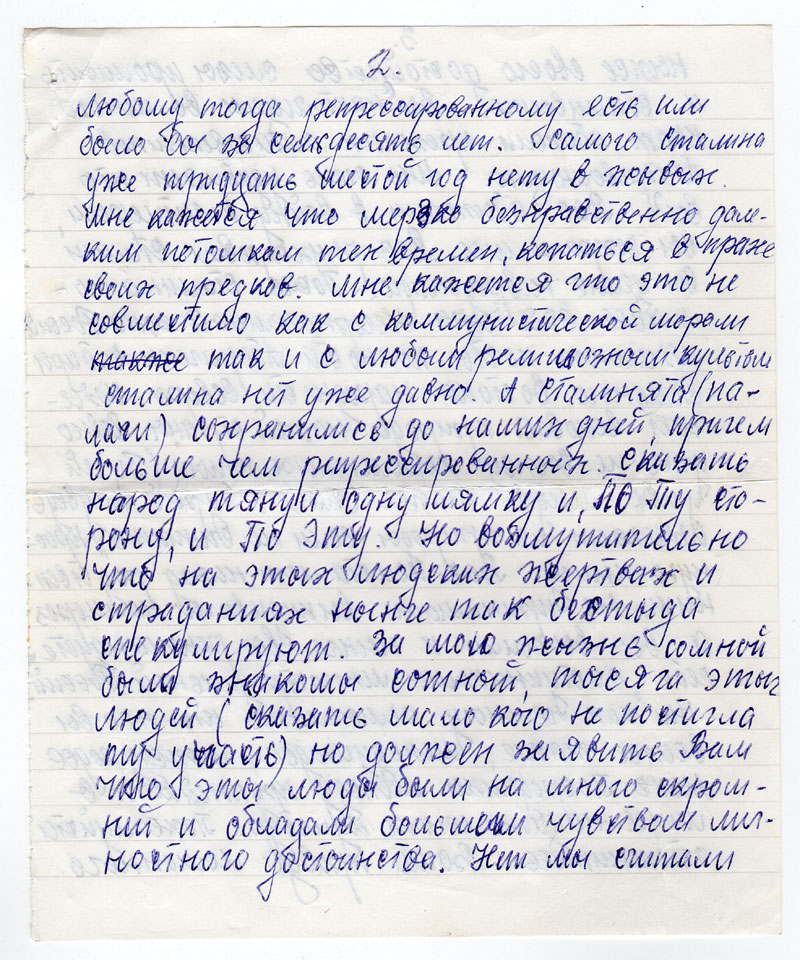 2.
любому тогда репрессированному есть или
было бы за семьдесять лет. Самого сталина
уже тридцать шестой год нету в жывых.
Мне кажется что мерзко безнравственно дале-
ким потомкам тех времен, копаться в прахе
своих предков. Мне кажется что это не
совместимо как с коммунистической моралью
также так и с любым религиозным культом
Сталина нет уже давно. А Сталинята (па-
лачи) сохранились до наших дней, причем
больше чем репрессированных. Сказать
народ тянул одну лямку и, ПО ТУ сто-
рону, и ПО ЭТУ. Но возмутительно
что на этих людских жертвах и
страданиях нынче так бестыда
спекулируют. За мою жызнь сомной
были знакомы сотный, тысяча этых
людей (сказать мало кого не постигла
ту участь) но должен заявить Вам
что эты люды были на много скром-
ний и обладали большым чувством лич-
ностного достоинства. Нет мы считали